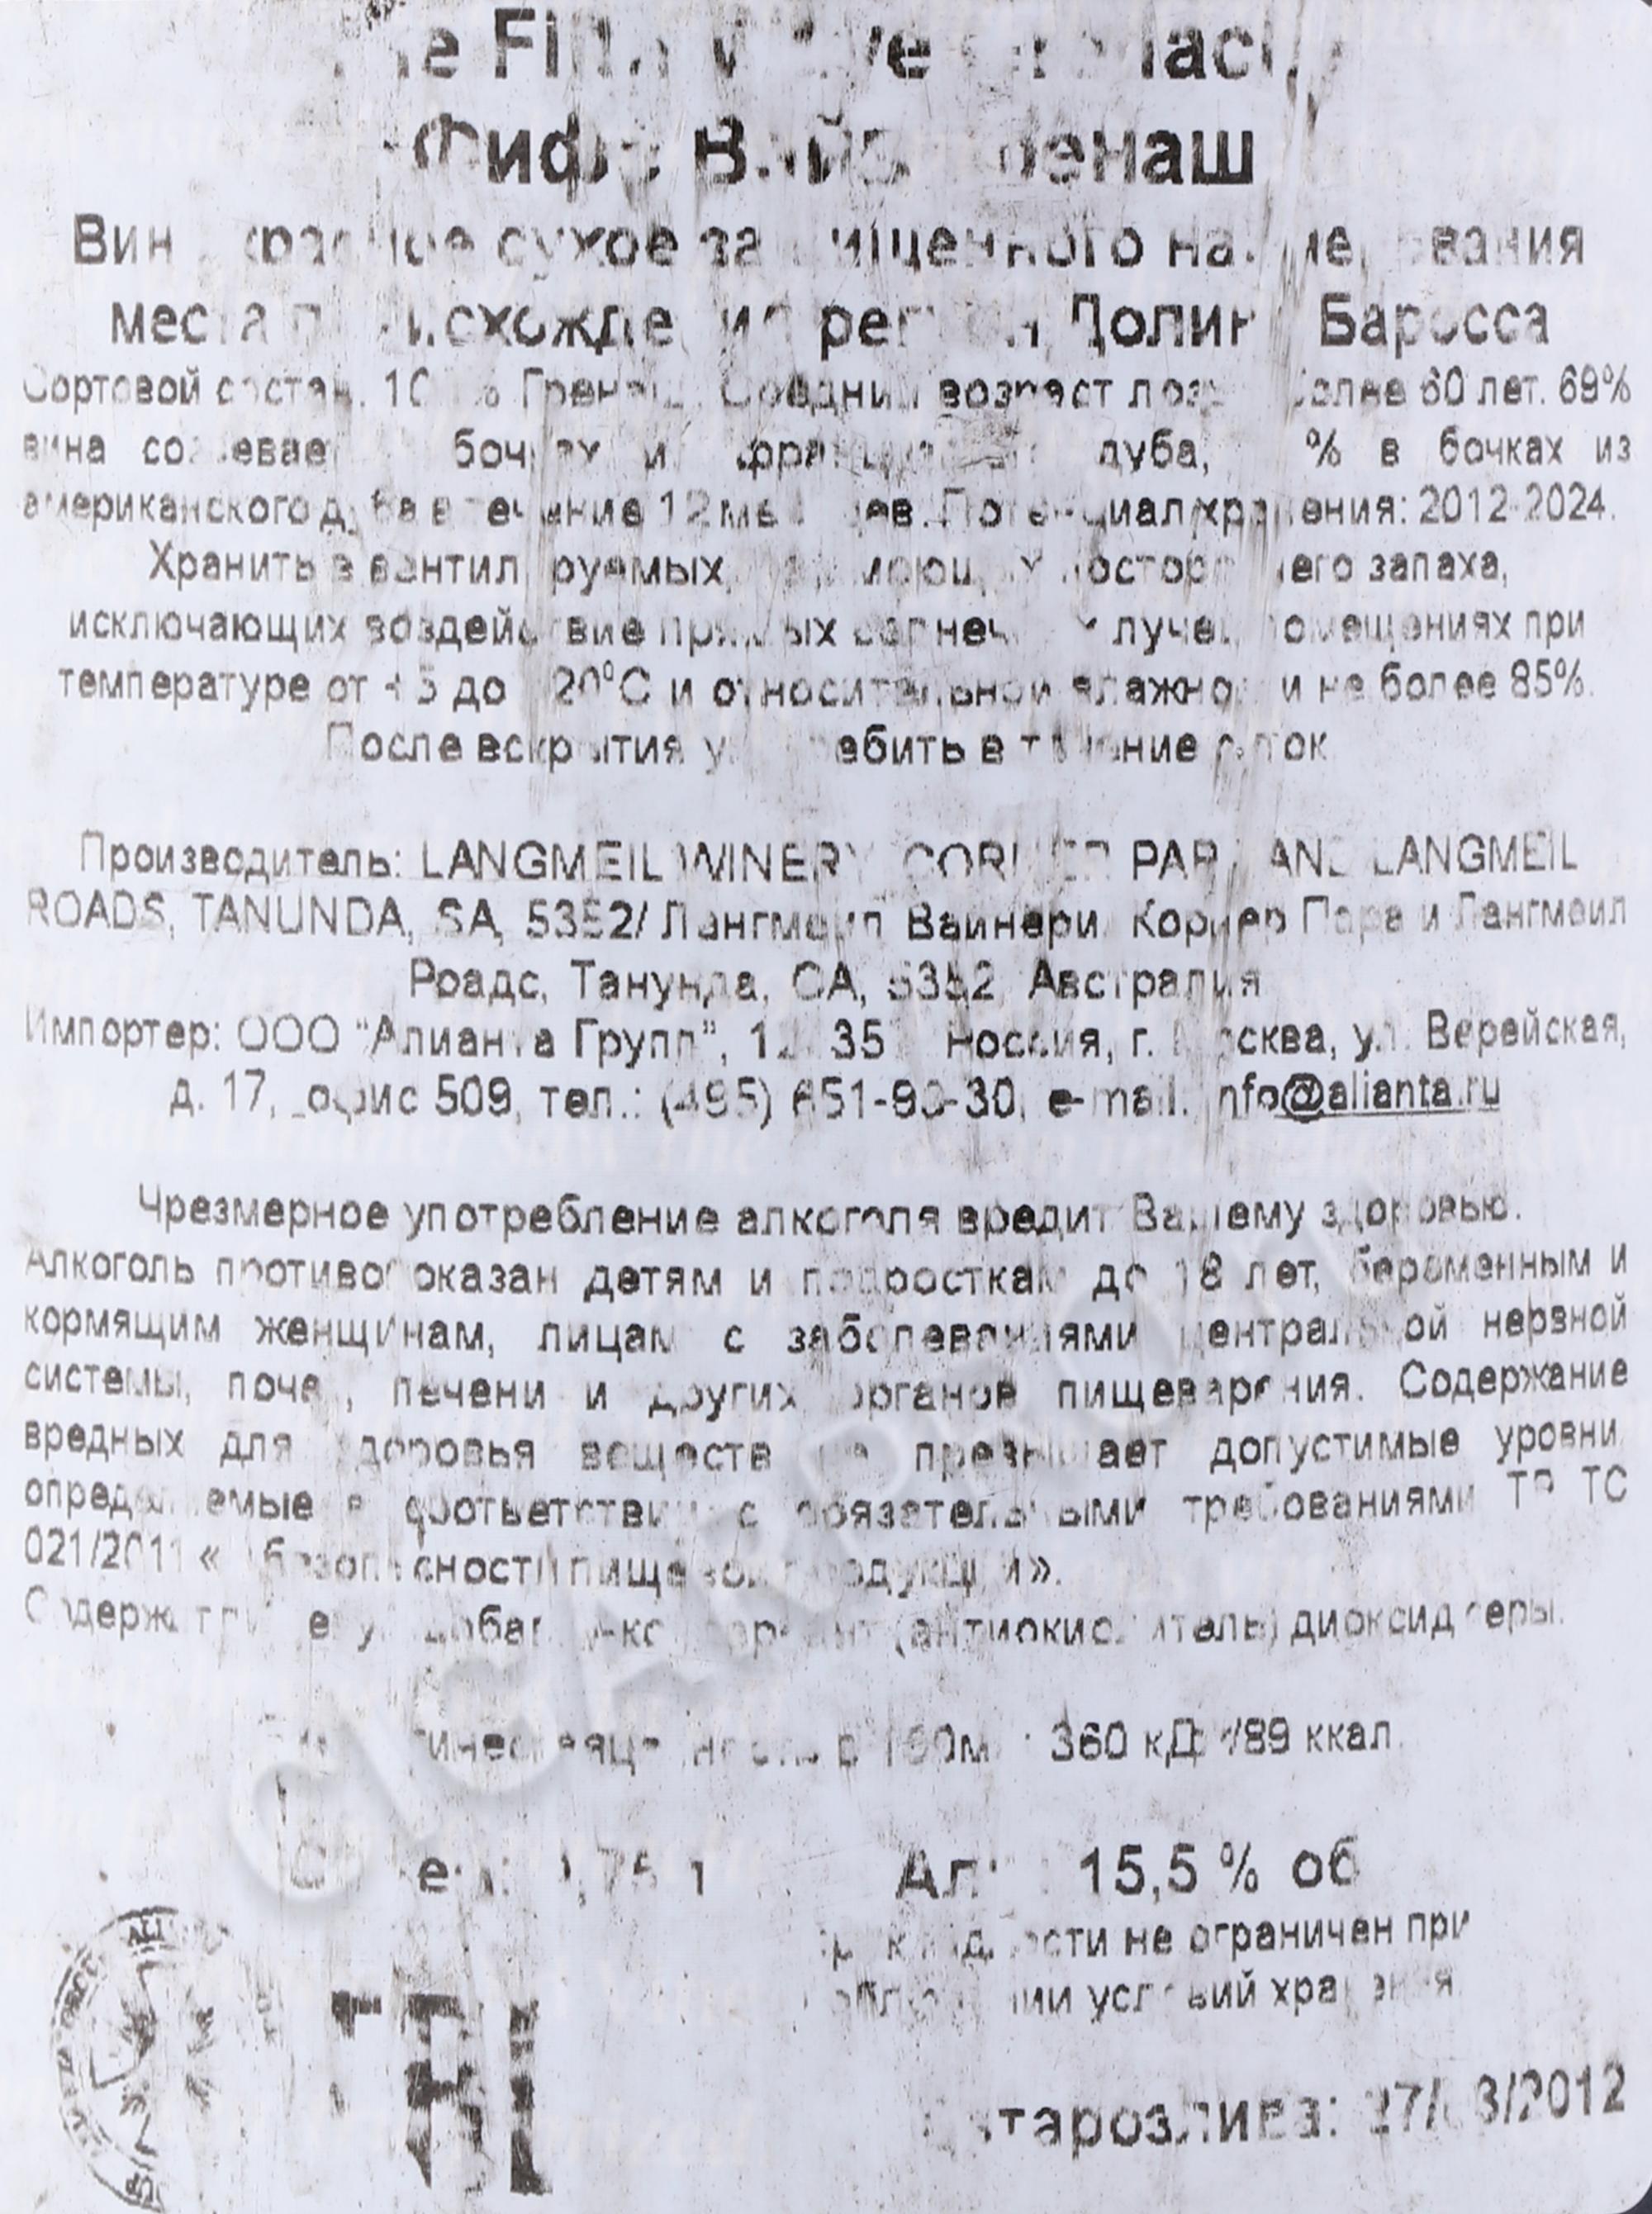 The Fifth Wave Grenache
Фифс Вэйв Гренаш
Вино красное сухое защищенного наименования
места происхождения региона Долина Баросса
Сортовой состав: 100% Гренаш. Средний возраст лозы более 60 лет. 69%
вина созревает в бочках из французского дуба, % в бочках из
американского дуба в течение 12 месяцев. Потенциал хранения: 2012-2024.
Хранить в вентилируемых, не имеющих постороннего запаха,
исключающих воздействие прямых солнечных лучей помещениях при
температуре от +5 до +20°С и относительной влажности не более 85%.
После вскрытия употребить в течение суток
Производитель: LANGMEIL WINERY, CORNER PARA AND LANGMEIL
ROADS, TANUNDA, SA, 5352/ Лангмеил Вайнери, Корнер Пара и Лангмеил
Роадс, Танунда, СА, 5352, Австралия
Импортер: ООО "Алианта Групп", Россия, г. Москва, ул. Верейская,
д. 17, офис 509, тел.: (495) 651-90-30, e-mail: info@alianta.ru
Чрезмерное употребление алкоголя вредит Вашему здоровью.
Алкоголь противопоказан детям и подросткам до 18 лет, беременным и
кормящим женщинам, лицам с заболеваниями центральной нервной
системы, почек, печени и других органов пищеварения. Содержание
вредных для здоровья веществ не превышает допустимые уровни,
определяемые в соответствии с обязательными требованиями ТР ТС
021/2011 «О безопасности пищевой продукции».
Содержит пищевую добавку-консервант (антиокислитель) диоксид серы.
Энергетическая ценность в 100мл: 360 кДж/89 ккал.
Объем: 0,75 л Алк.: 15,5 % об
Срок годности не ограничен при
соблюдении условий хранения
Дата розлива: 27/03/2012
CIGARPRO.RU